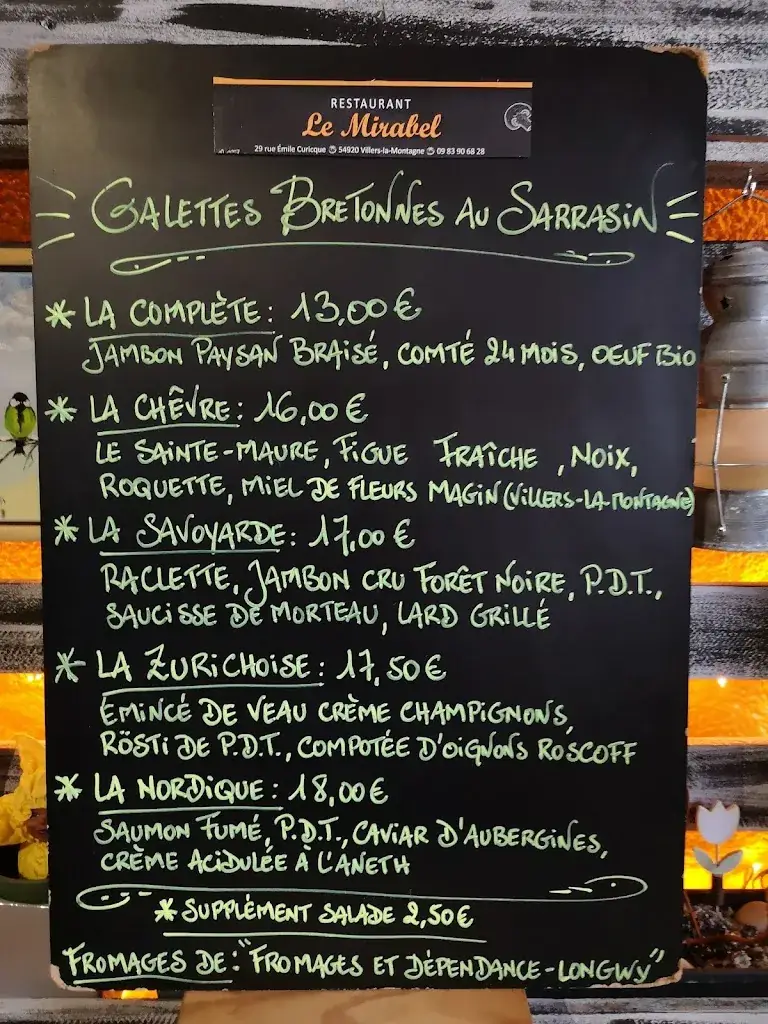 RESTAURANT
Le Mirabel
29 rue Émile Curicque 54920 Villers-la-Montagne 09 83 90 68 28
GALETTES BRETONNES AU SARRASIN
* LA COMPLÈTE : 13,00 €
JAMBON PAYSAN BRAISÉ, COMTÉ 24 MOIS, OEUF BIO
* LA CHÊVRE : 16,00 €
LE SAINTE-MAURE, FIGUE FRAÎCHE, NOIX,
ROQUETTE, MIEL DE FLEURS MAGIN (VILLERS-LA-MONTAGNE)
* LA SAVOYARDE : 17,00 €
RACLETTE, JAMBON CRU FORÊT NOIRE, P.D.T.,
SAUCISSE DE MORTEAU, LARD GRILLÉ
* LA ZURICHOISE : 17,50 €
ÉMINCÉ DE VEAU CRÈME CHAMPIGNONS,
RÖSTI DE P.D.T., COMPOTÉE D'OIGNONS ROSCOFF
* LA NORDIQUE : 18,00 €
SAUMON FUMÉ, P.D.T., CAVIAR D'AUBERGINES,
CRÈME ACIDULÉE À L'ANETH
* SUPPLÉMENT SALADE 2,50 €
FROMAGES DE : "FROMAGES ET DÉPENDANCE - LONGWY"